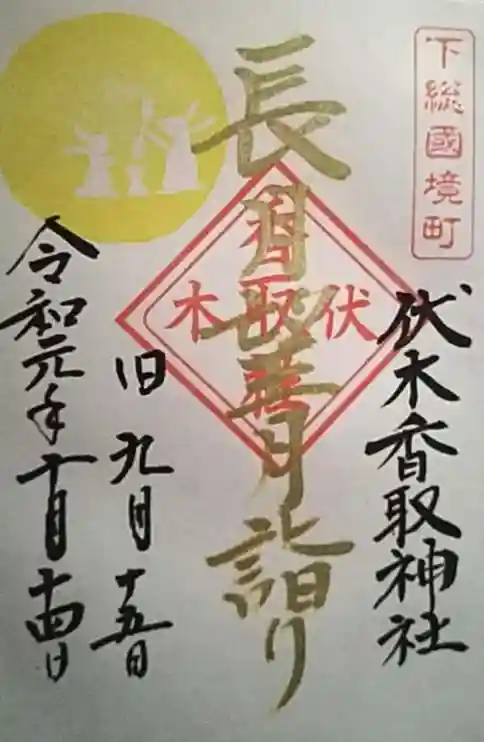 下総國境町
伏木香取神社
長月
華月詣り
香取
伏木
旧 九月 十五日
令和元年十月十四日